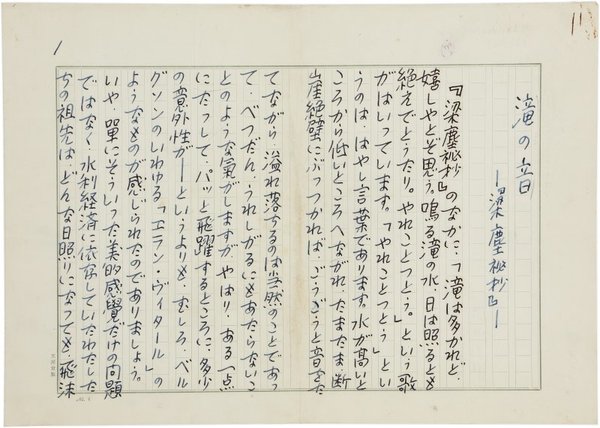 滝の音
―『梁塵秘抄』―
『梁塵秘抄』のなかに、「滝は多かれど、
嬉しやとぞ思う。鳴る滝の水、日は照るとも
絶えでとうたり。やれことつとう。」という歌
がはいっています。「やれことつとう」とい
うのは、はやし言葉であります。水が高いと
ころから低いところへながれ、たまたま断
崖絶壁にぶつつかれば、ごうごうと音をた
てながら、溢れ落ちるのは当然のことであっ
て、べつだん、うれしがるにもあたらないこ
とのような気がしますが、やはり、ある一点
にたっして、パッと飛躍するところに、多少
の意外性が――というよりも、むしろ、ベル
グソンのいわゆる「エラン・ヴィタール」の
ようなものが感じられたのでありましょう。
いや、単にそういった美的感覚だけの問題
ではなく、水利経済に依存していたわたした
ちの祖先は、どんな日照りになっても、飛沫
1
11